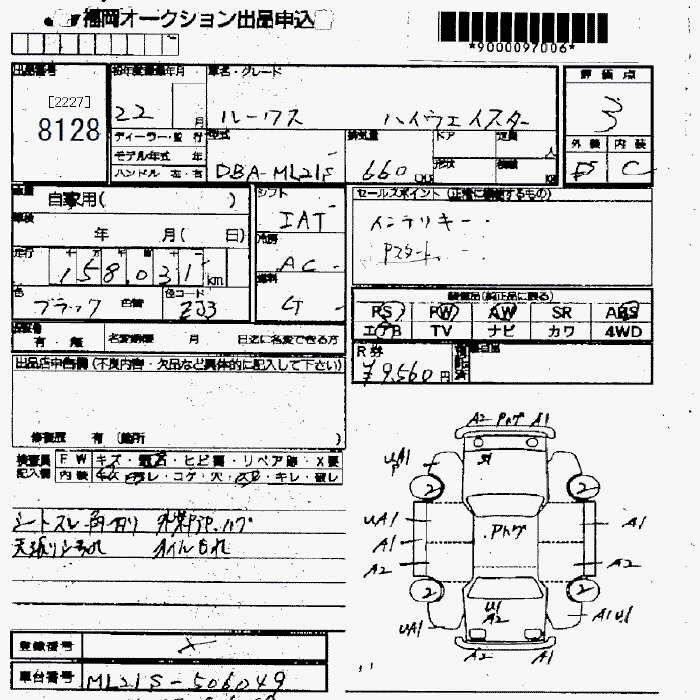 福岡オークション出品申込
*9000097006*
出品番号
[2227]
8128
初年度登録年月
22 月
車名・グレード
ルークス ハイウェイスター
評価点
3
ディーラー・並行
モデル年式 年
ハンドル 左・右
型式
DBA-ML21S
排気量
660
ドア
形状
定員
人
積載
KG
外装 内装
C
車歴
自家用( )
車検
年 月( 日)
走行
158,031 km
色
ブラック
色コード
ZJ3
シフト
IAT
冷房
AC
燃料
G
セールスポイント (正常に機能するもの)
インテリキー
Pスタート
装備品(純正品に限る)
PS PW AW SR ABS
エアB TV ナビ カワ 4WD
保証書
有・無
名変期限 月 日迄に名変できる方
R券
¥9,560円
出品店申告欄 (不良内容・欠品など具体的に記入して下さい)
修復歴 有 (箇所 )
検査員
記入欄
FW キズ・飛石・ヒビ割・リペア跡・X要
内装 キズ・汚レ・コゲ・穴・スレ・キレ・破レ
シートスレ
天張りシミ汚れ オイルもれ
A2 Pハゲ A1
UA1
P
2 2
UA1 A1
A1 Pハゲ
A2 A2
2 2
U1
A2
UA1 A1 U1
A2 A1
登録番号
車台番号
ML21S-506049